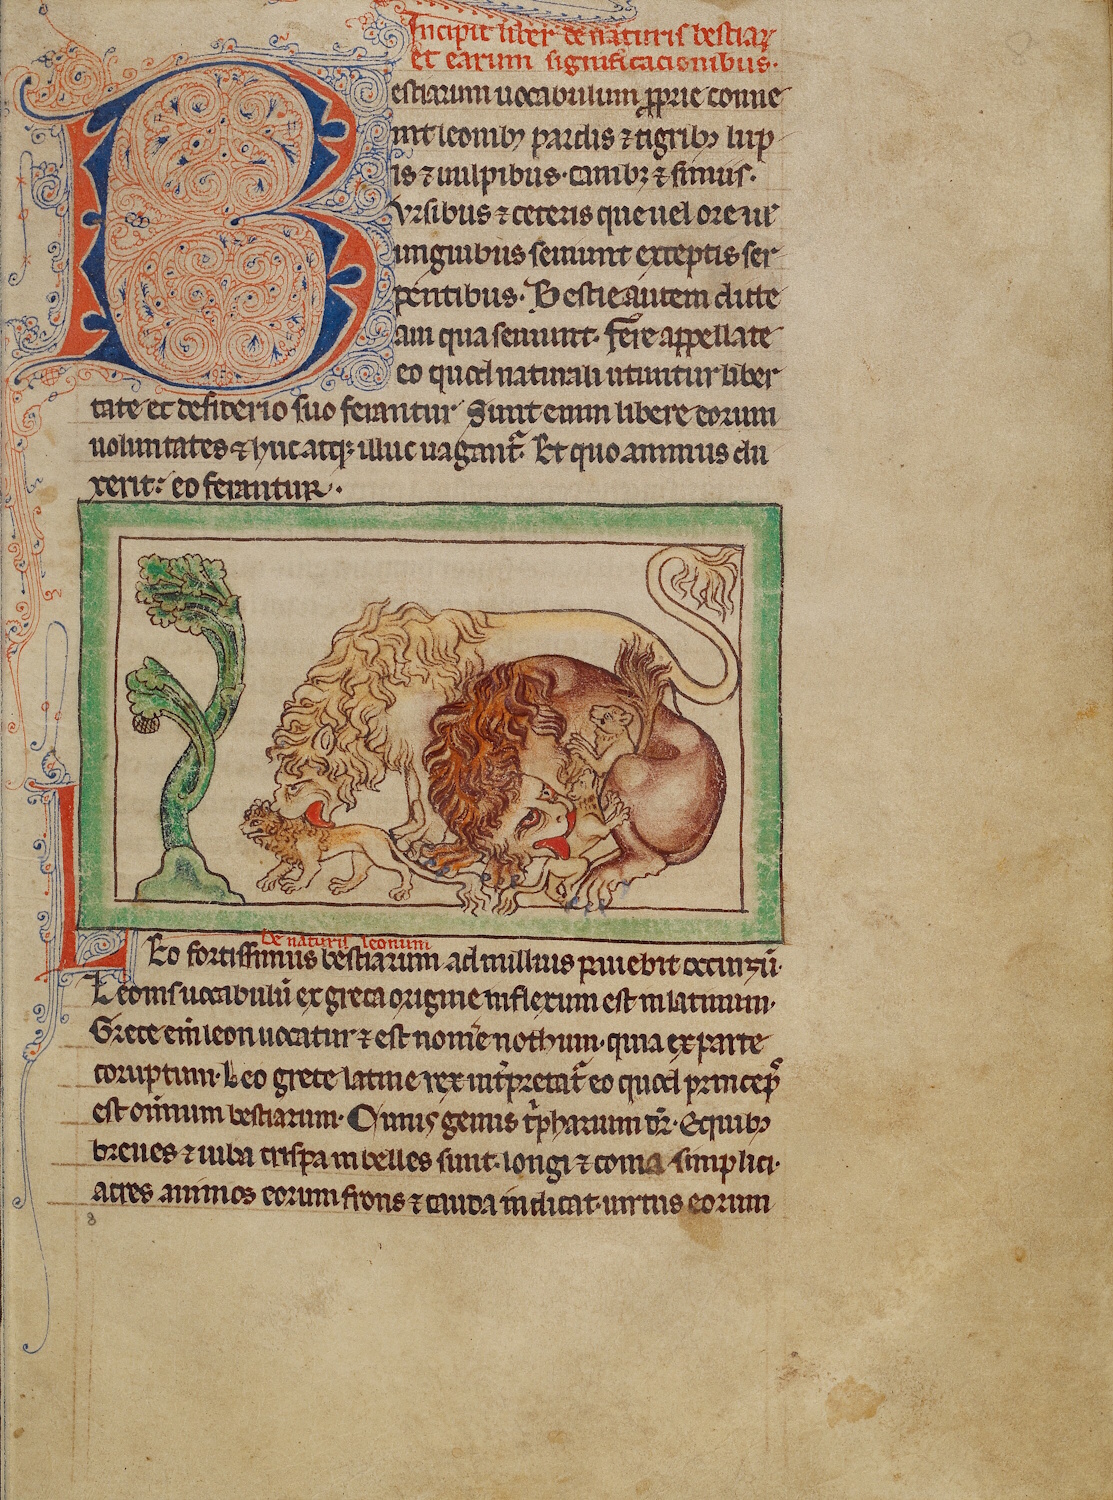 Incipit liber de naturis bestiaꝝ
et earum significacionibus.
Bestiarum uocabulum ꝓprie conue
nit leonibꝫ pardis ⁊ tigribꝫ lup
is ⁊ uulpibus. canibꝫ ⁊ simiis.
Vrsibus ⁊ ceteris que uel ore uel
unguibus seuiunt exceptis ser
pentibus. Bestie autem dicte
a ui qua seuiunt. fere appellate
eo quod naturali utuntur liber
tate et desiderio suo ferantur Sunt enim libere eorum
uoluntates ⁊ huc atqꝫ illuc uagant̃. Et quo animus du
xerit: eo ferantur.
De naturis leonum
Leo fortissimus bestiarum ad nullius pauebit occursũ.
Leonis uocabulũ ex greca origine inflexum est in latinum.
Grece eni͂ leon uocatur ⁊ est nom̃e nothum. quia ex parte
coruptum. Leo grece latine rex int̃pretat̃ eo quod princeps
est om̃ium bestiarum. Cuius genus t̃pharium dr̃. E quibꝫ
breues ⁊ iuba crispa inbelles sunt. longi ⁊ coma simplici.
acres animos eorum frons ⁊ cauda indicat. uirtus eorum
8